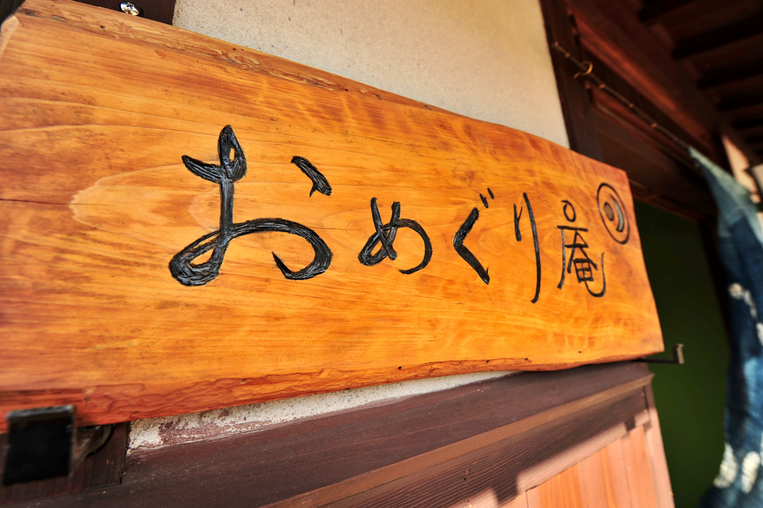 おめぐり庵